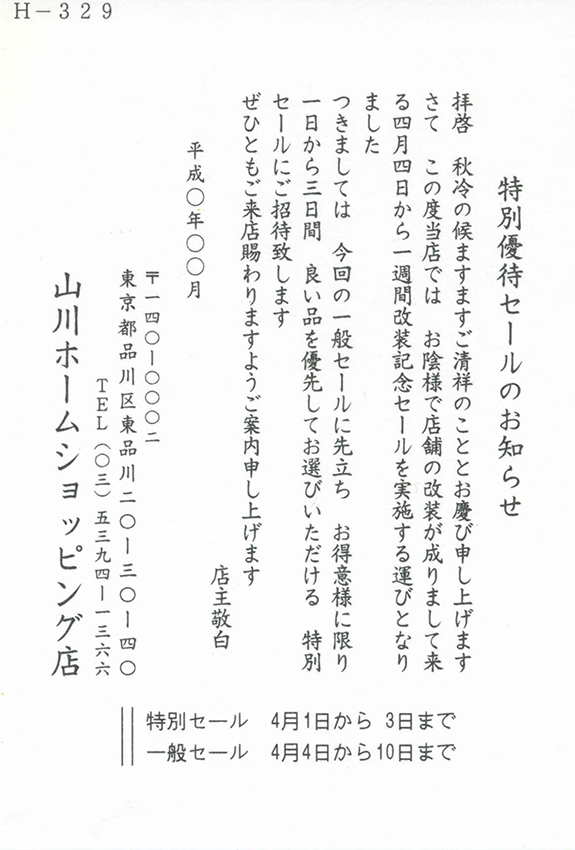 H－329
特別優待セールのお知らせ
拝啓　秋冷の候ますますご清祥のこととお慶び申し上げます
さて　この度当店では　お陰様で店舗の改装が成りまして来
る四月四日から一週間改装記念セールを実施する運びとなり
ました
つきましては　今回の一般セールに先立ち　お得意様に限り
一日から三日間　良い品を優先してお選びいただける　特別
セールにご招待致します
ぜひともご来店賜わりますようご案内申し上げます
店主敬白
平成〇年〇〇月
〒一四〇ー〇〇〇二
東京都品川区東品川二〇ー三〇ー四〇
TEL（〇三）五三九四ー一三六六
山川ホームショッピング店
特別セール　4月1日から 3日まで
一般セール　4月4日から10日まで